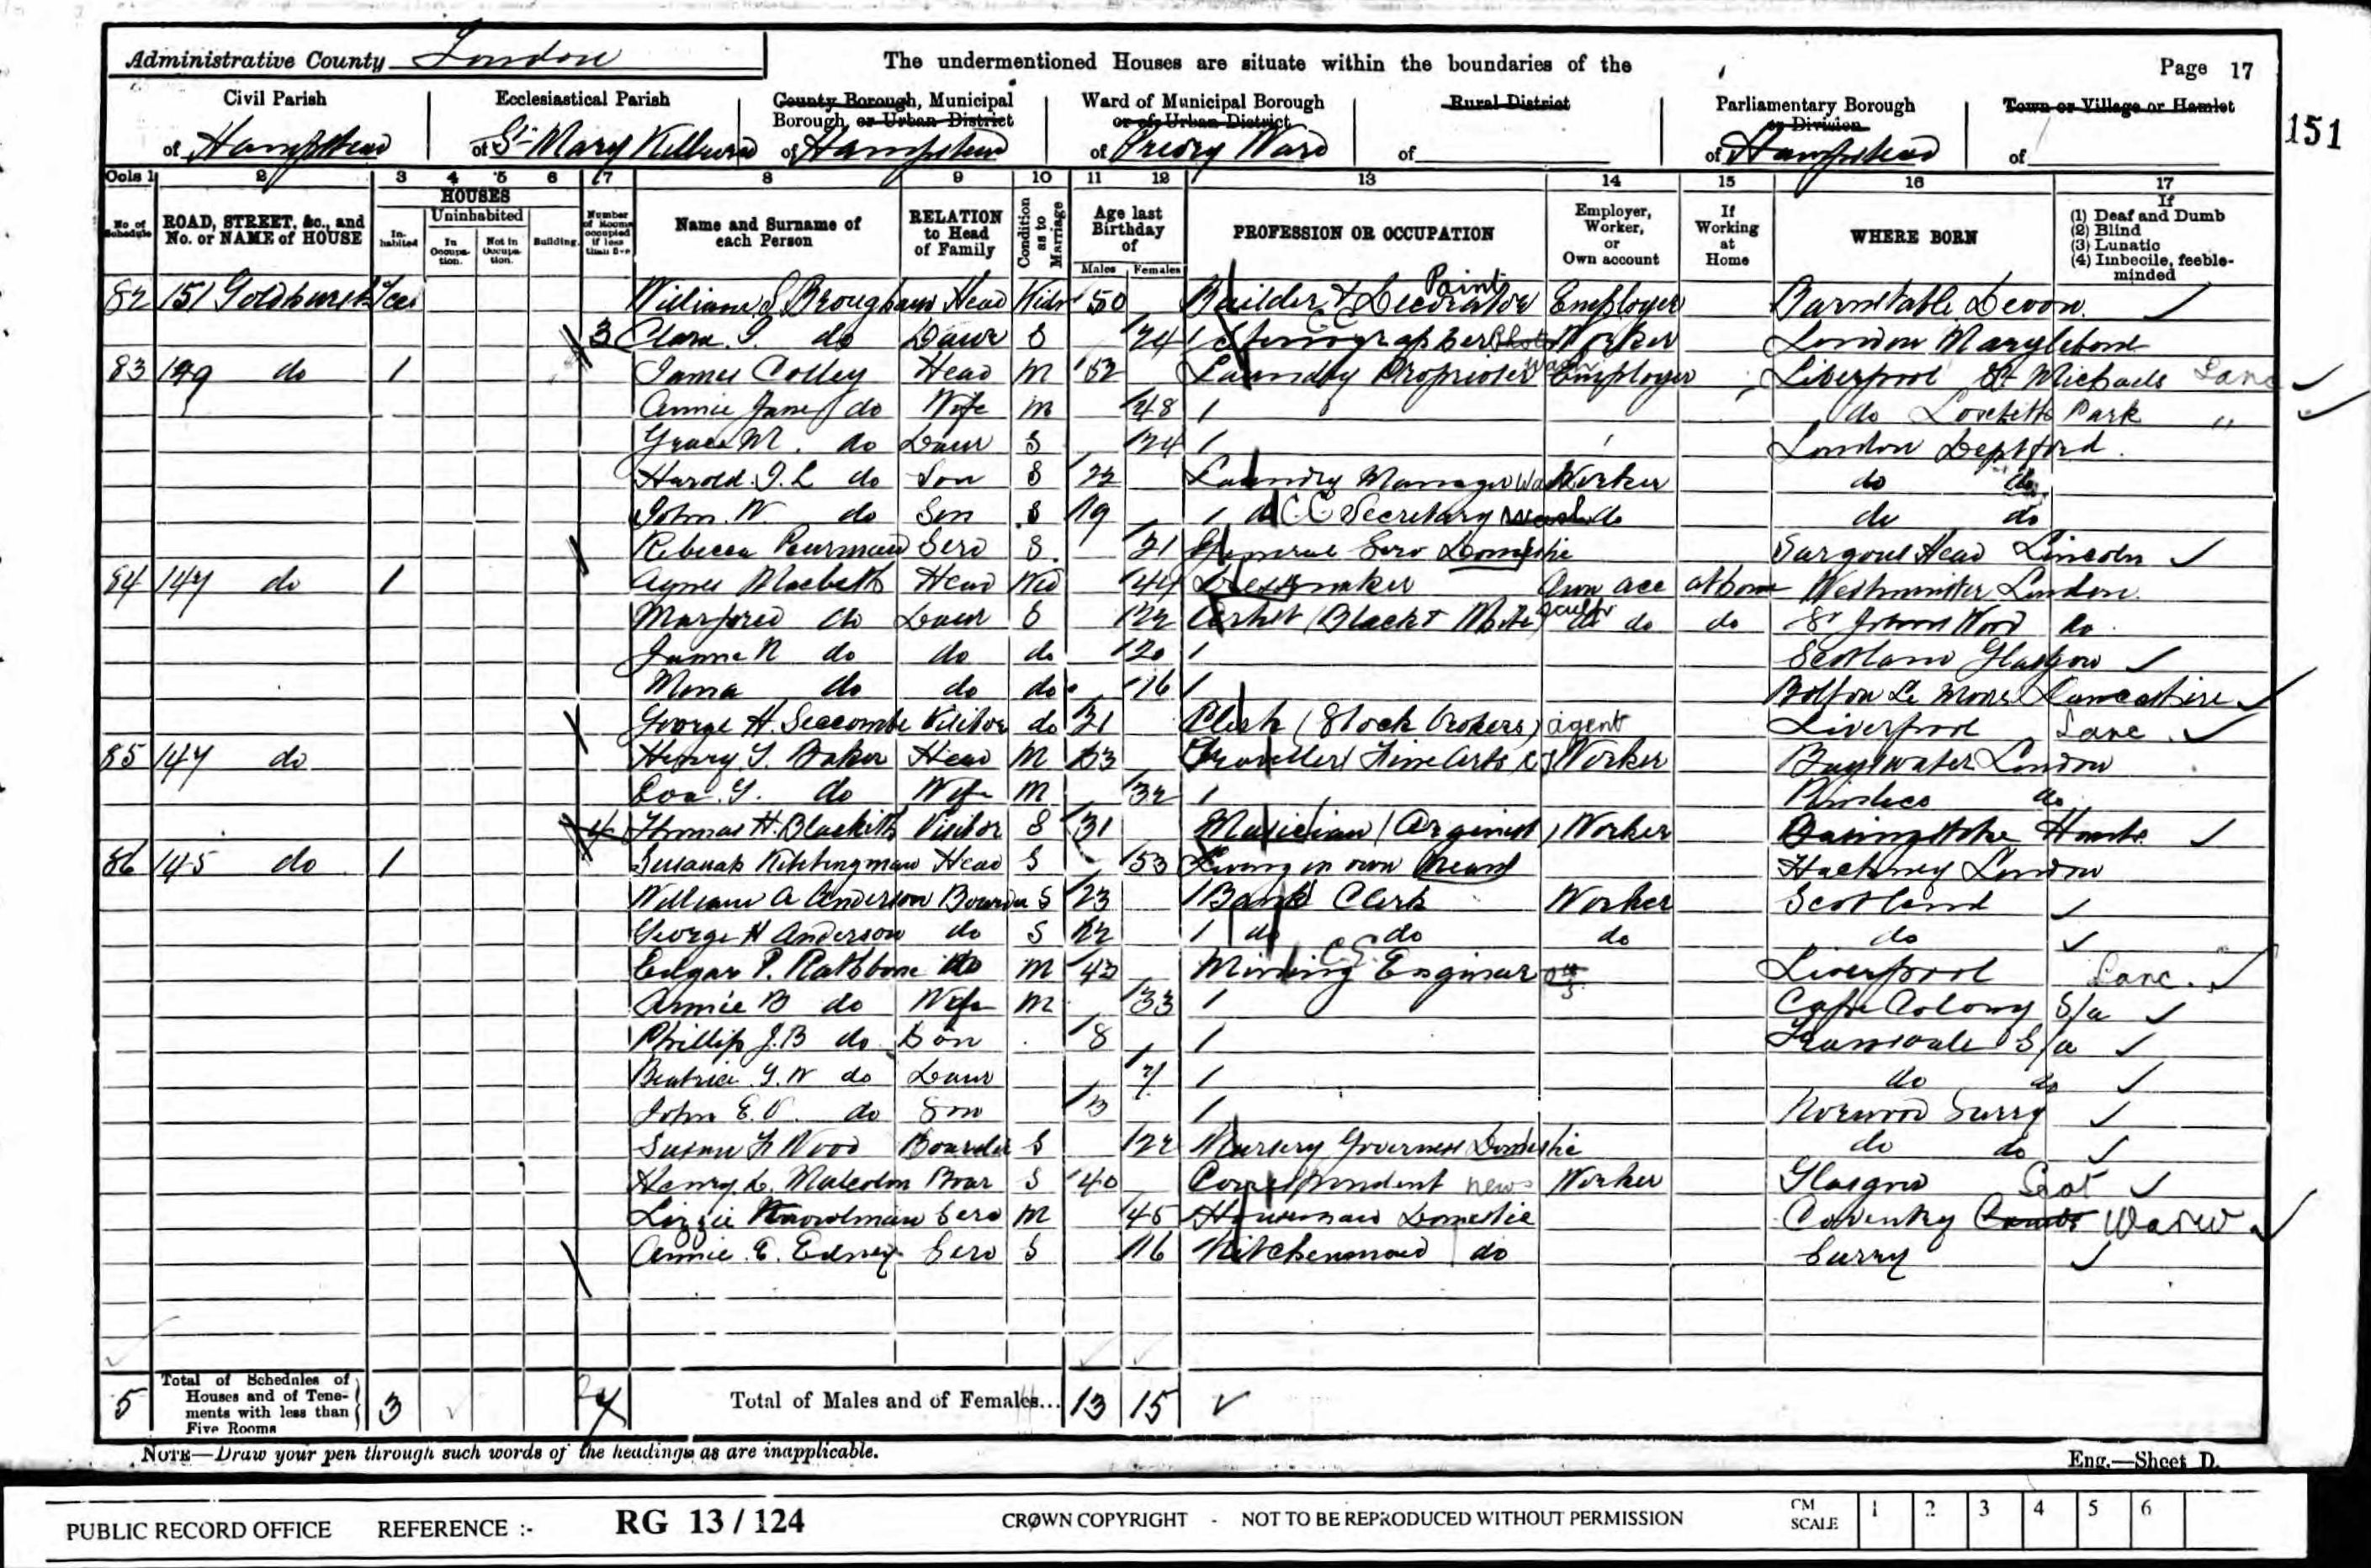 Administrative County London
The undermentioned Houses are situate within the boundaries of the
Page 17
Civil Parish
of Hampstead
Ecclesiastical Parish
of St Mary Kilburn
County Borough, Municipal
Borough, or Urban District
of Hampstead
Ward of Municipal Borough
or of Urban District
of Priory Ward
Rural District
of
Parliamentary Borough
or Division
of Hampstead
Town or Village or Hamlet
of
151
Cols 1 2 3 4 5 6 7 8 9 10 11 12 13 14 15 16 17
No of Schedule
ROAD, STREET, &c., and
No. or NAME of HOUSE
HOUSES
In-habited
Uninhabited
In Occupa-tion.
Not in Occupa-tion.
Building.
Number of Rooms occupied if less than five
Name and Surname of
each Person
RELATION
to Head
of Family
Condition as to Marriage
Age last
Birthday
of
Males Females
PROFESSION OR OCCUPATION
Employer,
Worker,
or
Own account
If
Working
at
Home
WHERE BORN
If
(1) Deaf and Dumb
(2) Blind
(3) Lunatic
(4) Imbecile, feeble-
minded
82 151 Goldhurst Ter William S Brougham Head Widr 50 Builder & Decorator Paint Employer Barnstable Devon
3 Clara do Daur S 24 Stenographer Worker London Marylebone
83 149 do 1 James Colley Head M 52 Laundry Proprietor Wash Employer Liverpool St Michaels Lanc
Annie Jane do Wife M 48 do Park "
Grace M. do Daur S 24 London Deptford
Harold do Son S 22 Laundry Manager Worker do do
John W do Son S 19 do CC Secretary do do do
Rebecca Serv S 21 General Serv Domestic Head Lincoln
84 147 do 1 Agnes Macbeth Head Wid 44 Dressmaker Own acc at home Westminster London
do Daur S 22 Artist (Black & White) sculptr do do do St Johns Wood do
do do do 20 Scotland Glasgow
Mona do do do 16 Bolton Le Moors Lancashire
George H. Seccombe Visitor do 21 Clerk (Stock brokers) agent Liverpool Lanc
85 147 do Henry Baker Head M 33 Traveller Fine Arts Worker Bayswater London
do Wife M 32 Pimlico do
4 Thomas H. Blackith Visitor S 31 Musician (Organist) Worker Basingstoke Hants
86 145 do 1 Head S 53 Living on own means Hackney London
William A Anderson Boarder S 23 Bank Clerk Worker Scotland
George H Anderson do S 22 do do do do
Edgar P. Rathbone do M 43 Mining Engineer C.E. Liverpool Lanc.
Annie B do Wife M 33 Cape Colony S/a
Phillip J.B do Son 8 Transvaale S/a
Beatrice do Daur 7 do do
John E. do Son 3 Norwood Surry
Susan Wood Boarder S 22 Nursery Governess Domestic do do
Henry L. Malcolm Boar S 40 Correspondent news Worker Glasgow Scot
Lizzie Serv M 45 Housemaid Domestic Coventry Warw
Annie E. Edney Serv S 16 Kitchenmaid do Surry
5
Total of Schedules of
Houses and of Tene-
ments with less than
Five Rooms
3
Total of Males and of Females...
13 15
NOTE—Draw your pen through such words of the headings as are inapplicable.
Eng.—Sheet D.
PUBLIC RECORD OFFICE REFERENCE :- RG 13 / 124
CROWN COPYRIGHT - NOT TO BE REPRODUCED WITHOUT PERMISSION
CM
SCALE
1 2 3 4 5 6